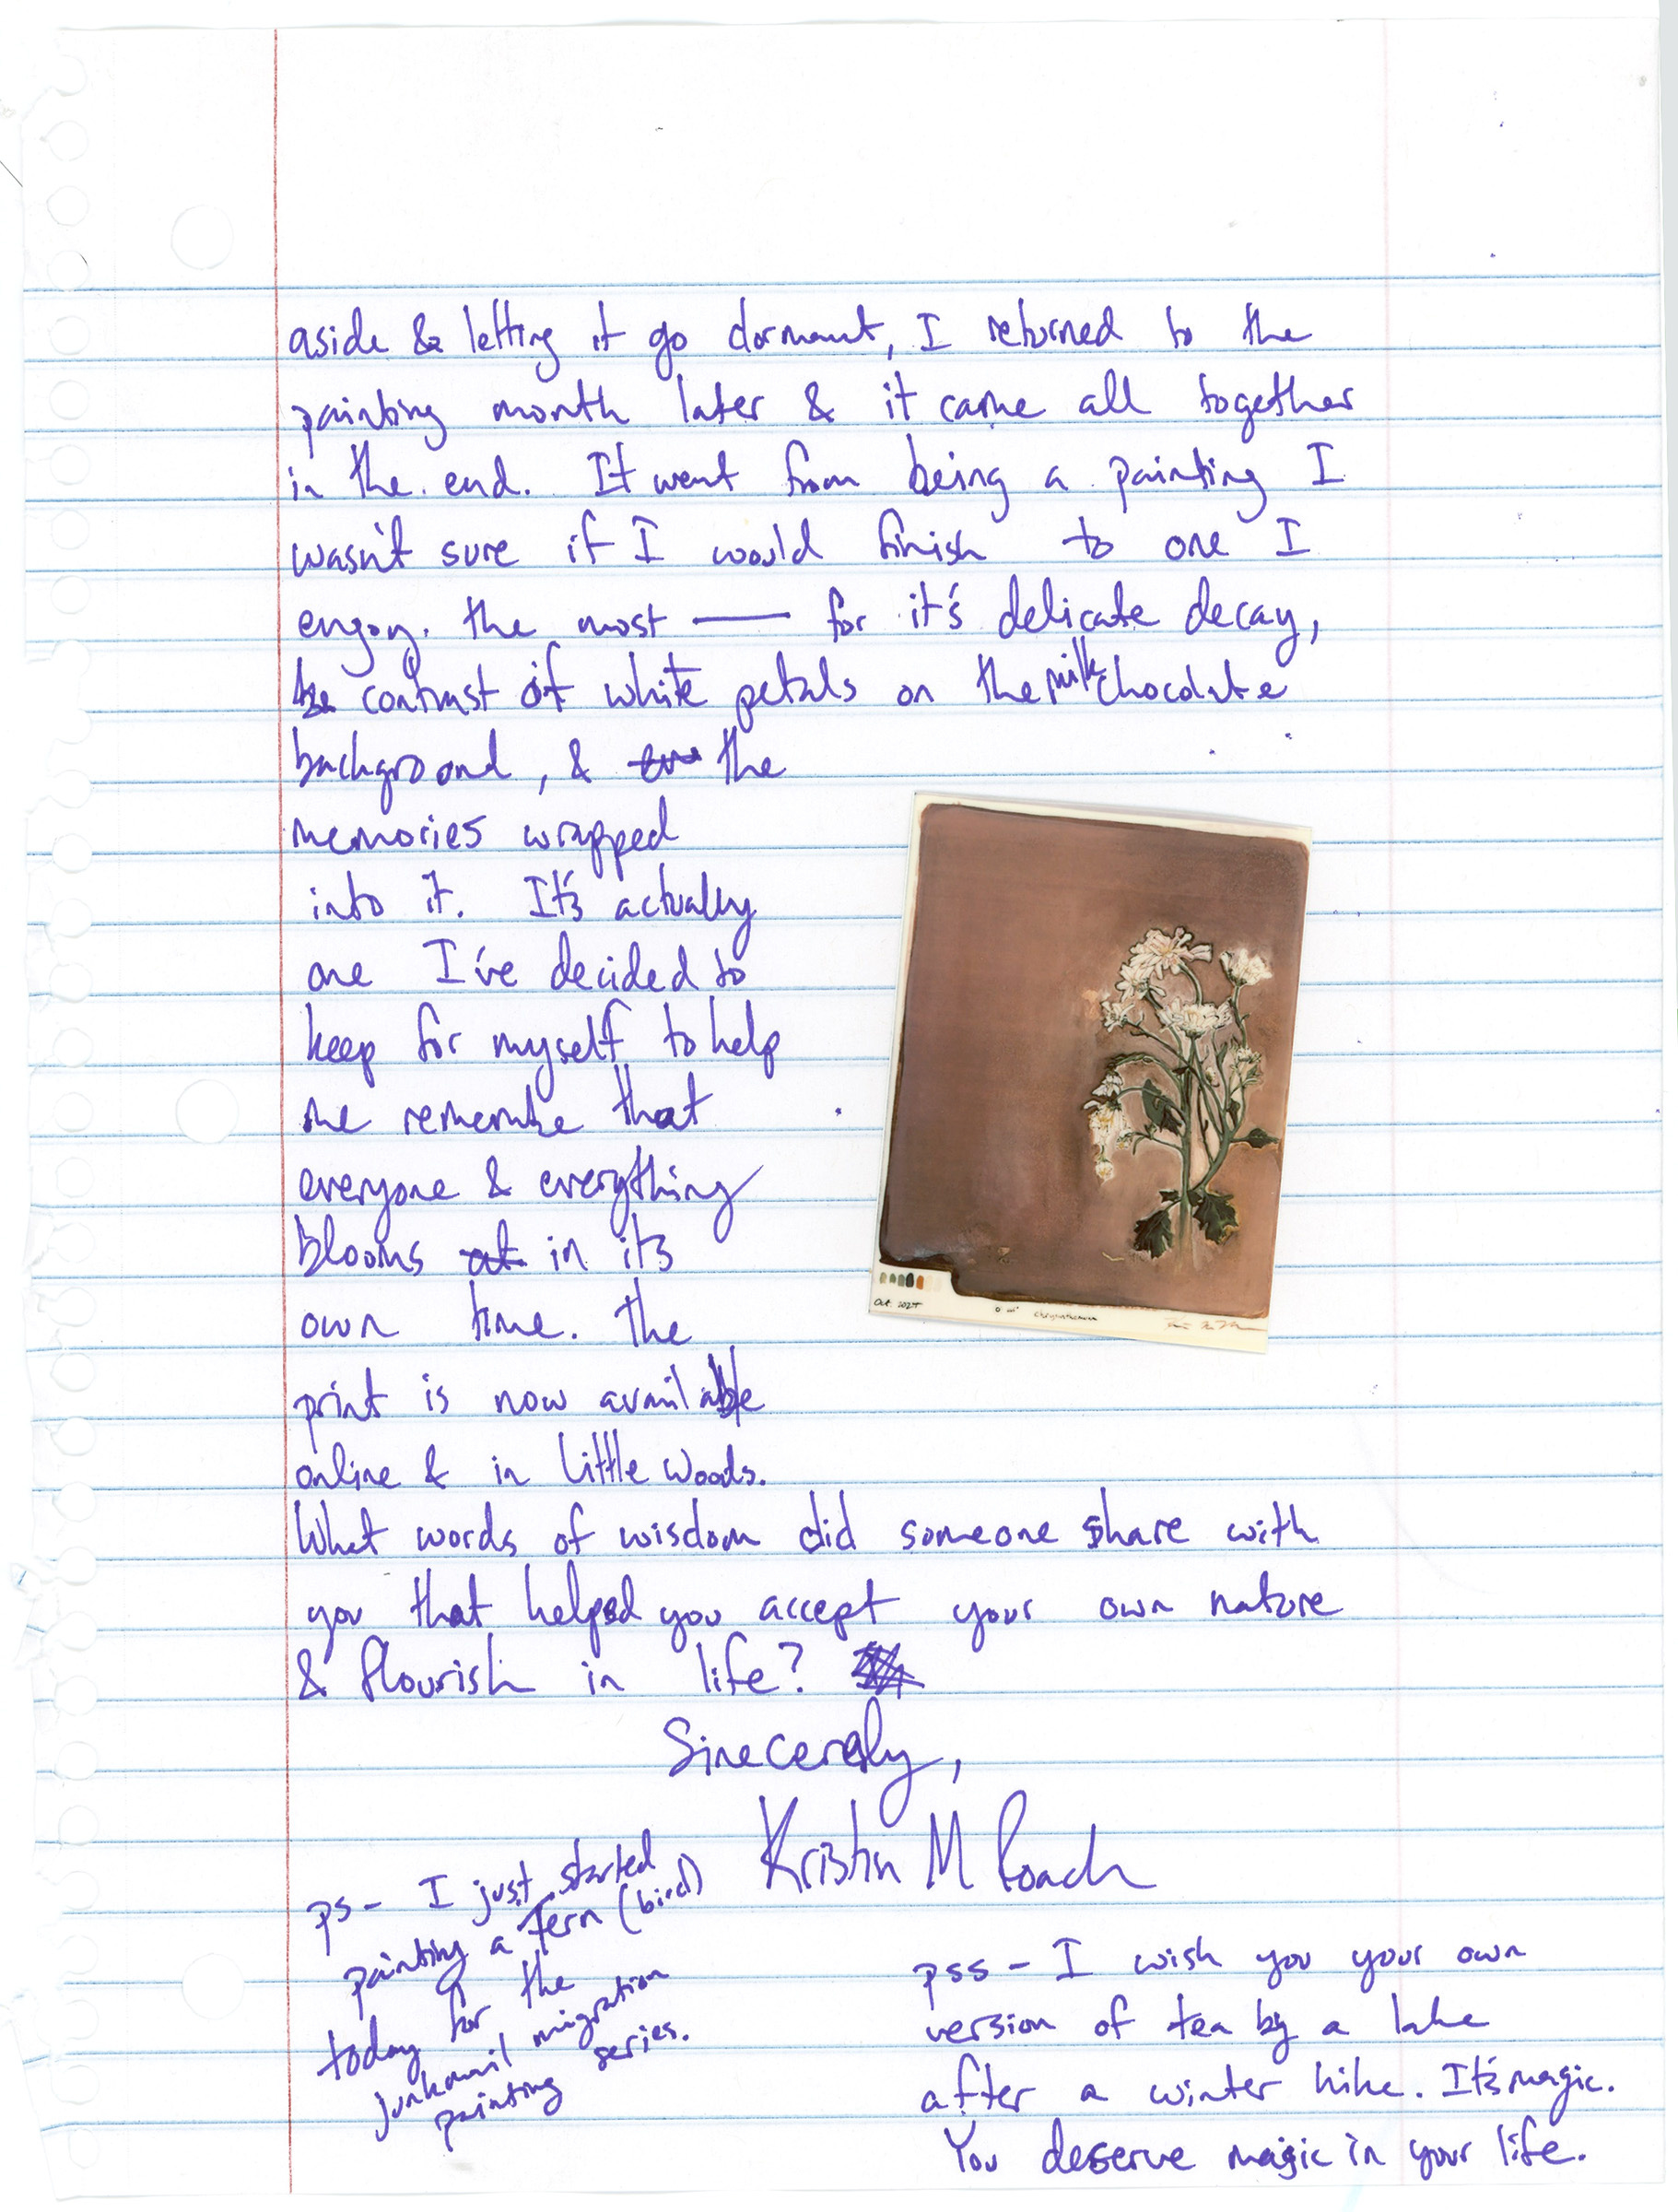 aside & letting it go dormant, I returned to the
painting month later & it came all together
in the end. It went from being a painting I
wasn't sure if I would finish to one I
enjoy. the most — for it's delicate decay,
the contrast of white petals on the milk chocolate
background, & the
memories wrapped
into it. It's actually
one I've decided to
keep for myself to help
me remembe that
everyone & everything
blooms at in its
own time. The
print is now available
online & in Little Woods.
What words of wisdom did someone share with
you that helped you accept your own nature
& flourish in life?
Sincerely,
Kristin M Roach
ps - I just started
painting a Tern (bird)
today for the
junkmail migration
painting series.
pss - I wish you your own
version of tea by a lake
after a winter hike. It's magic.
You deserve magic in your life.
Oct. 2025
chrysanthemum